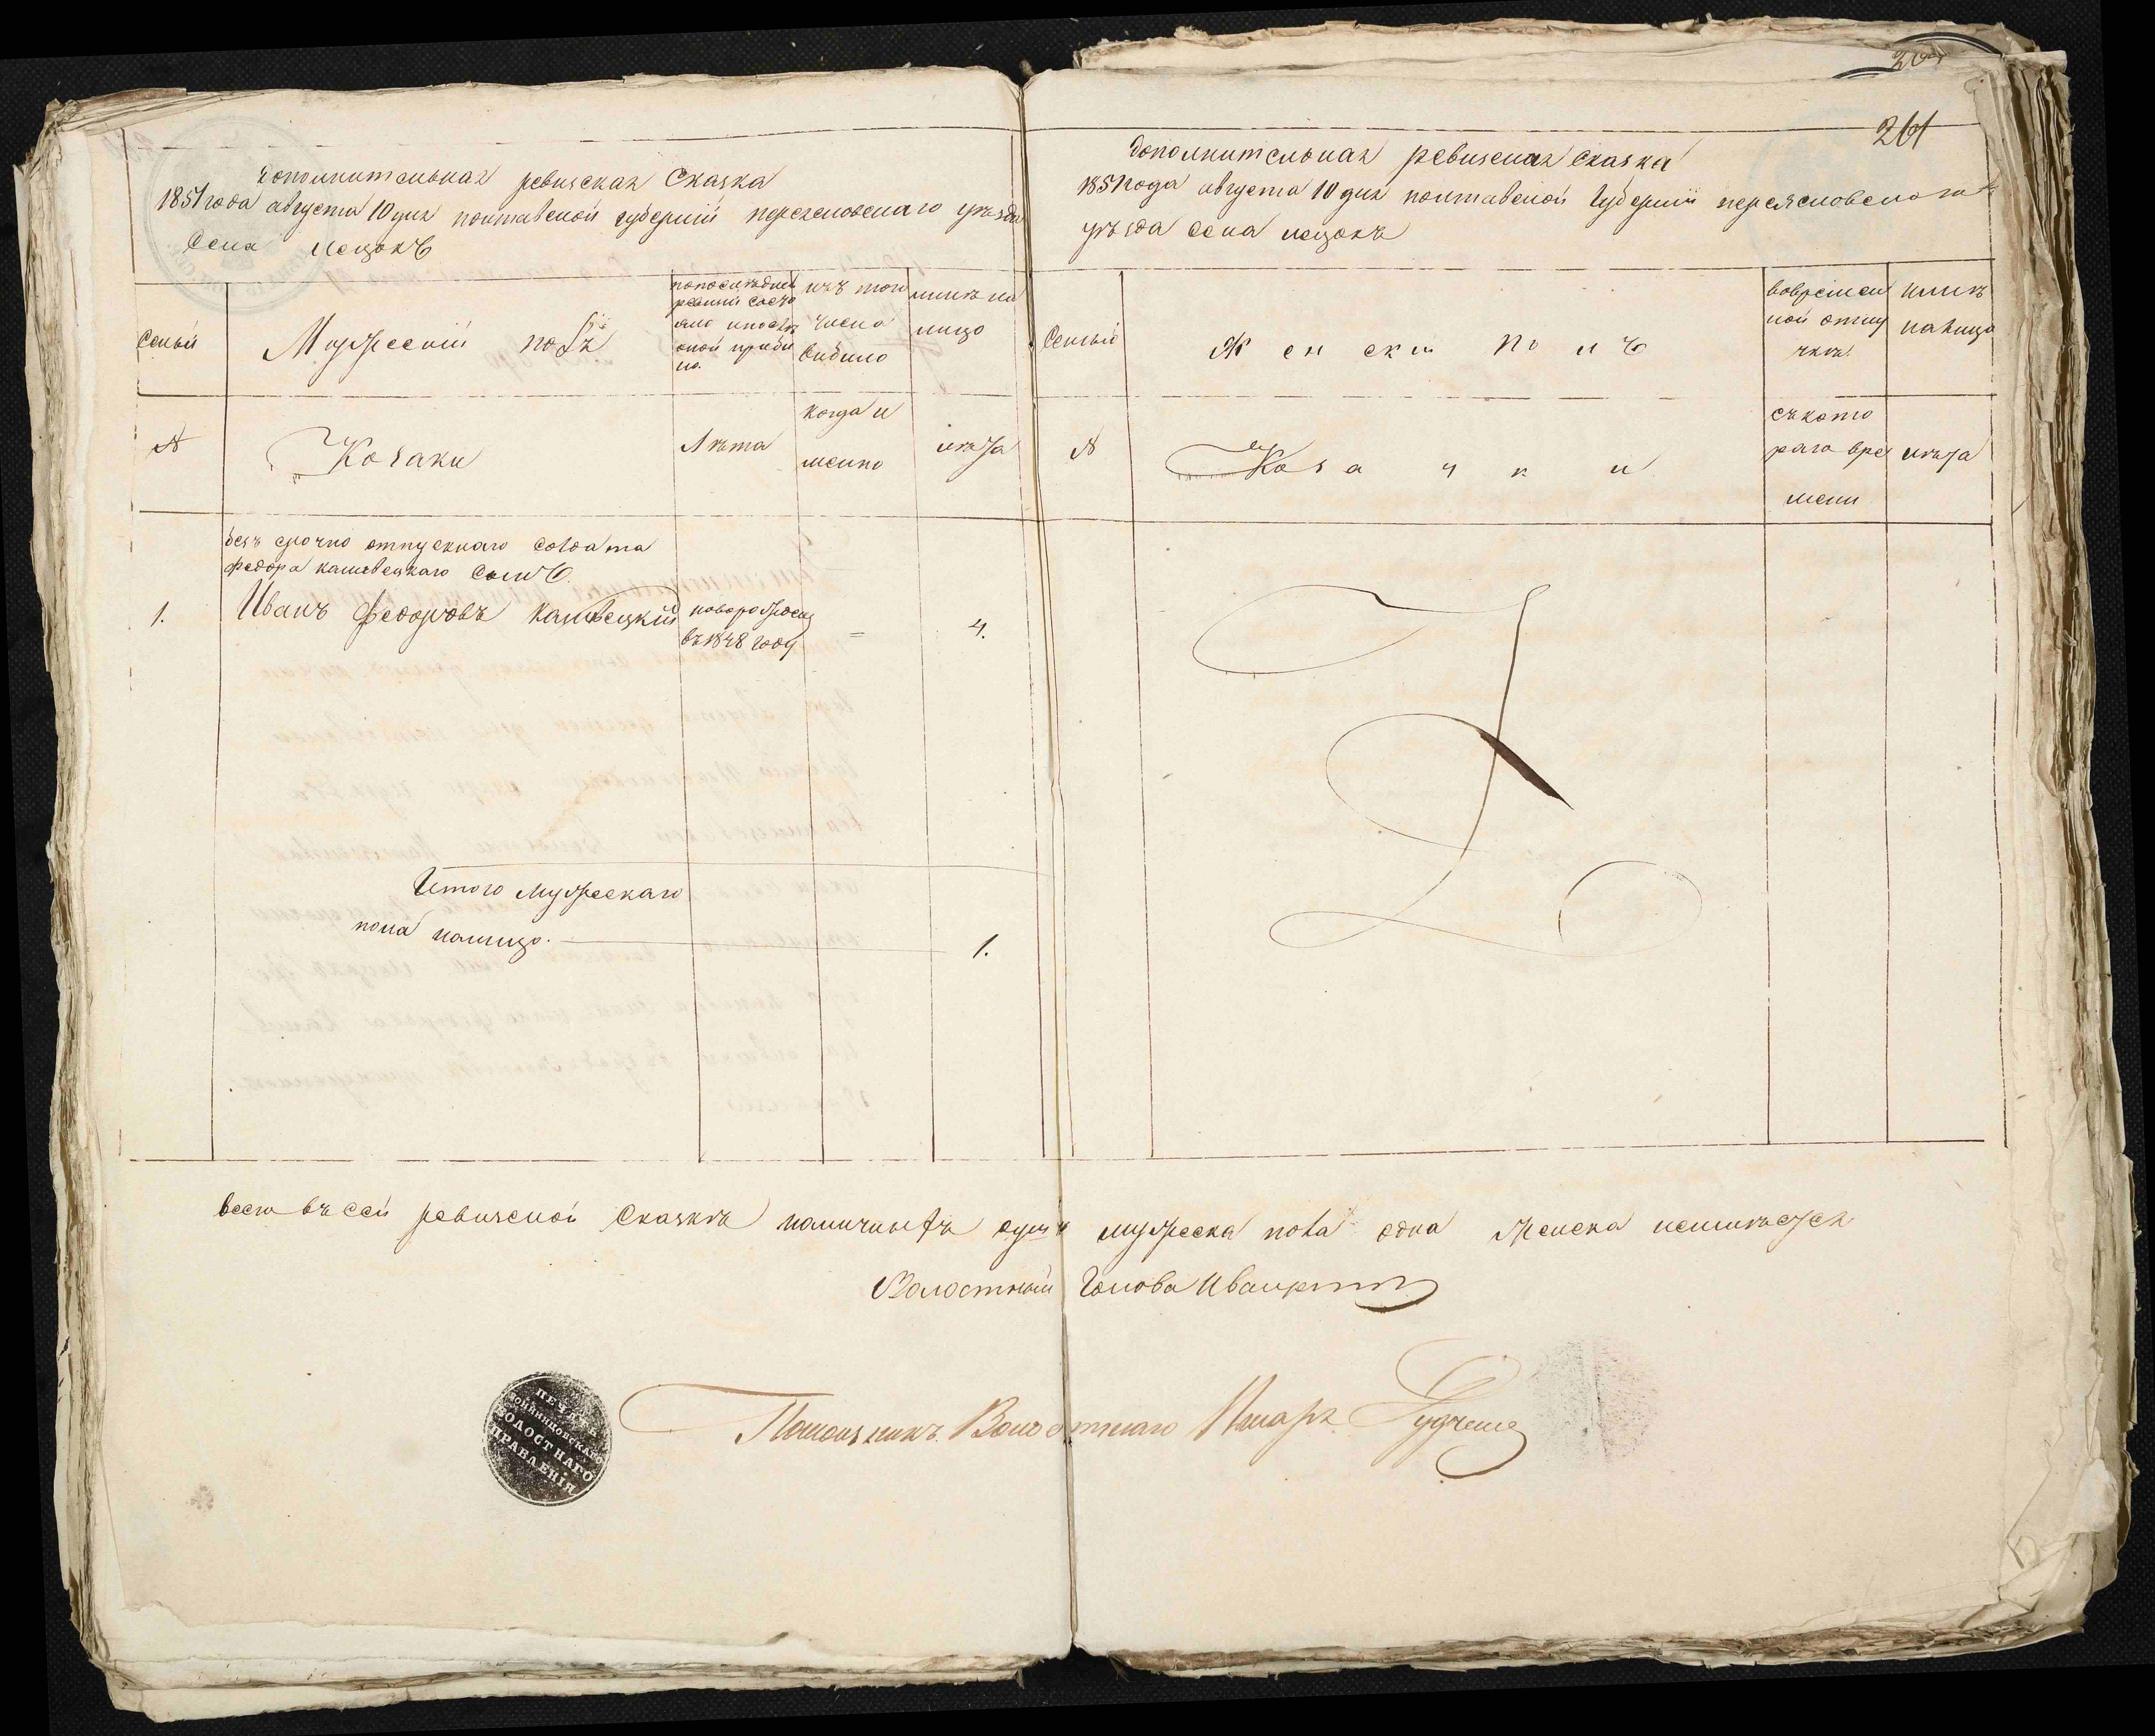 261
дополнительная ревизская Сказка
1851 года августа 10 дня полтавской губернии переясловскаго уезда
Села Мецокъ
Семьи
Мужеский полъ
по последней ревизии состо
яло и после
оной прибы
ло.
изъ того
числа
выбыло
ныне на
лицо
№
Козаки
Лета
когда и
менно
лета
безъ срочно отпускнаго солдата
федора каливецкаго Сынъ
1.
Иванъ Федоровъ
новорожден
въ 1848 году
=
4.
Итого Мужескаго
пола налицо.
1.
дополнительная ревизская сказка
1851 года августа 10 дня полтавской Губернии переясловскаго
уезда села мецокъ
Семьи
Женски полъ
во времен
ной отлу
чке
ныне
налицо
№
Козачки
съ кото
раго вре
мени
лета
всего въ сей ревизской Сказке наличныхъ душъ мужеска пола одна женска неимеется
Волостный Голова Иван
Помощникъ Волостнаго Писаря
ПЕЧАТЬ
ВОЙНИНЦОВСКАГО
ВОЛОСТНАГО
ПРАВЛЕНІЯ